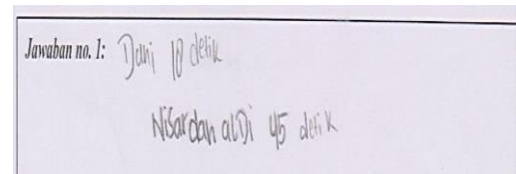 Jawaban no. 1: Dani 10 detik
Nisar dan alDi 45 detik